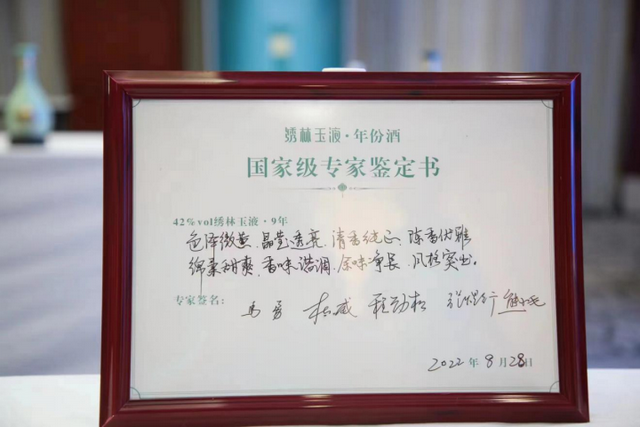 绣林玉液·年份酒
国家级专家鉴定书
42%vol绣林玉液·9年
色泽微黄、晶莹透亮、清香纯正、陈香优雅
绵柔甜爽、香味谐调、余味净长、风格突出。
专家签名： 程劲松
2022年8月28日